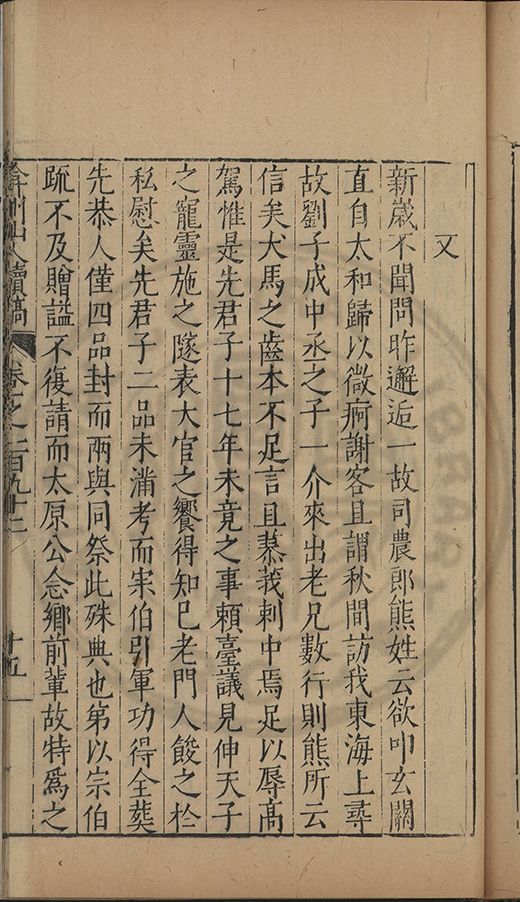 又
新歲不聞問昨邂逅一故司農郎熊姓云欲叩玄關
直自太和歸以微痾謝客且謂秋間訪我東海上尋
故劉子成中丞之子一介來出老兄數行則熊所云
信矣犬馬之齒本不足言且慕莪刺中焉足以辱高
駕惟是先君子十七年未竟之事頼臺議見伸天子
之寵靈施之隧表大官之饗得知巳老門人餕之於
私慰矣先君子二品未滿考而宋伯引軍功得全葬
先恭人僅四品封而兩與同祭此殊典也第以宗伯
疏不及贈諡不復請而太原公念鄉前軰故特爲之
弇州山人續稿 卷之一百九十二 十五